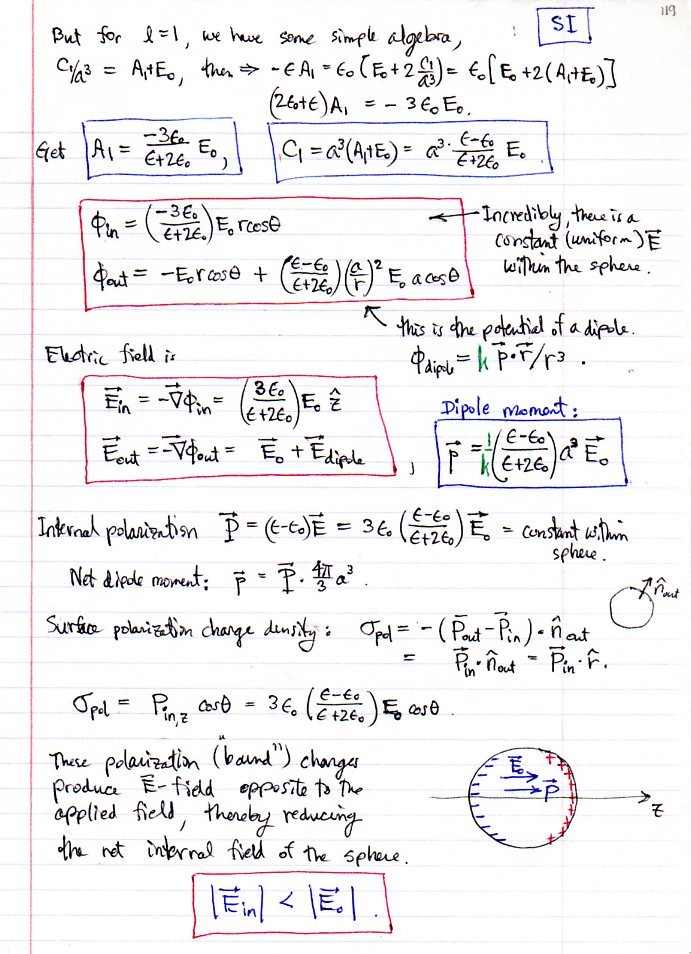 119
SI
But for l=1, we have some simple algebra,
C₁/a³ = A₁+E₀, then ⇒ -ϵA₁ = ϵ₀(E₀+2 C₁/a³) = ϵ₀[E₀+2(A₁+E₀)]
(2ϵ₀+ϵ)A₁ = -3ϵ₀E₀.
Get A₁ = -3ϵ₀/(ϵ+2ϵ₀) E₀, C₁ = a³(A₁+E₀) = a³·(ϵ-ϵ₀)/(ϵ+2ϵ₀) E₀.
ϕin = (-3ϵ₀/(ϵ+2ϵ₀)) E₀ r cosθ
← Incredibly, there is a
constant (uniform) E⃗
within the sphere.
ϕout = -E₀ r cosθ + ((ϵ-ϵ₀)/(ϵ+2ϵ₀)) (a/r)² E₀ a cosθ
this is the potential of a dipole.
ϕdipole = k p⃗·r⃗/r³.
Electric field is
E⃗in = -∇⃗ϕin = (3ϵ₀/(ϵ+2ϵ₀)) E₀ ẑ
E⃗out = -∇⃗ϕout = E⃗₀ + E⃗dipole,
Dipole moment:
p⃗ = 1/k ((ϵ-ϵ₀)/(ϵ+2ϵ₀)) a³ E⃗₀
Internal polarization P⃗ = (ϵ-ϵ₀)E⃗ = 3ϵ₀ ((ϵ-ϵ₀)/(ϵ+2ϵ₀)) E⃗₀ = constant within
sphere.
Net dipole moment: p⃗ = P⃗ · 4π/3 a³.
n̂out
Surface polarization charge density: σpol = -(P⃗out - P⃗in)·n̂out
= P⃗in·n̂out = P⃗in·r̂.
σpol = Pin,z cosθ = 3ϵ₀ ((ϵ-ϵ₀)/(ϵ+2ϵ₀)) E₀ cosθ.
These polarization ("bound") charges
produce E⃗-field opposite to the
applied field, thereby reducing
the net internal field of the sphere.
E⃗₀
P⃗
z
|E⃗in| < |E⃗₀|.